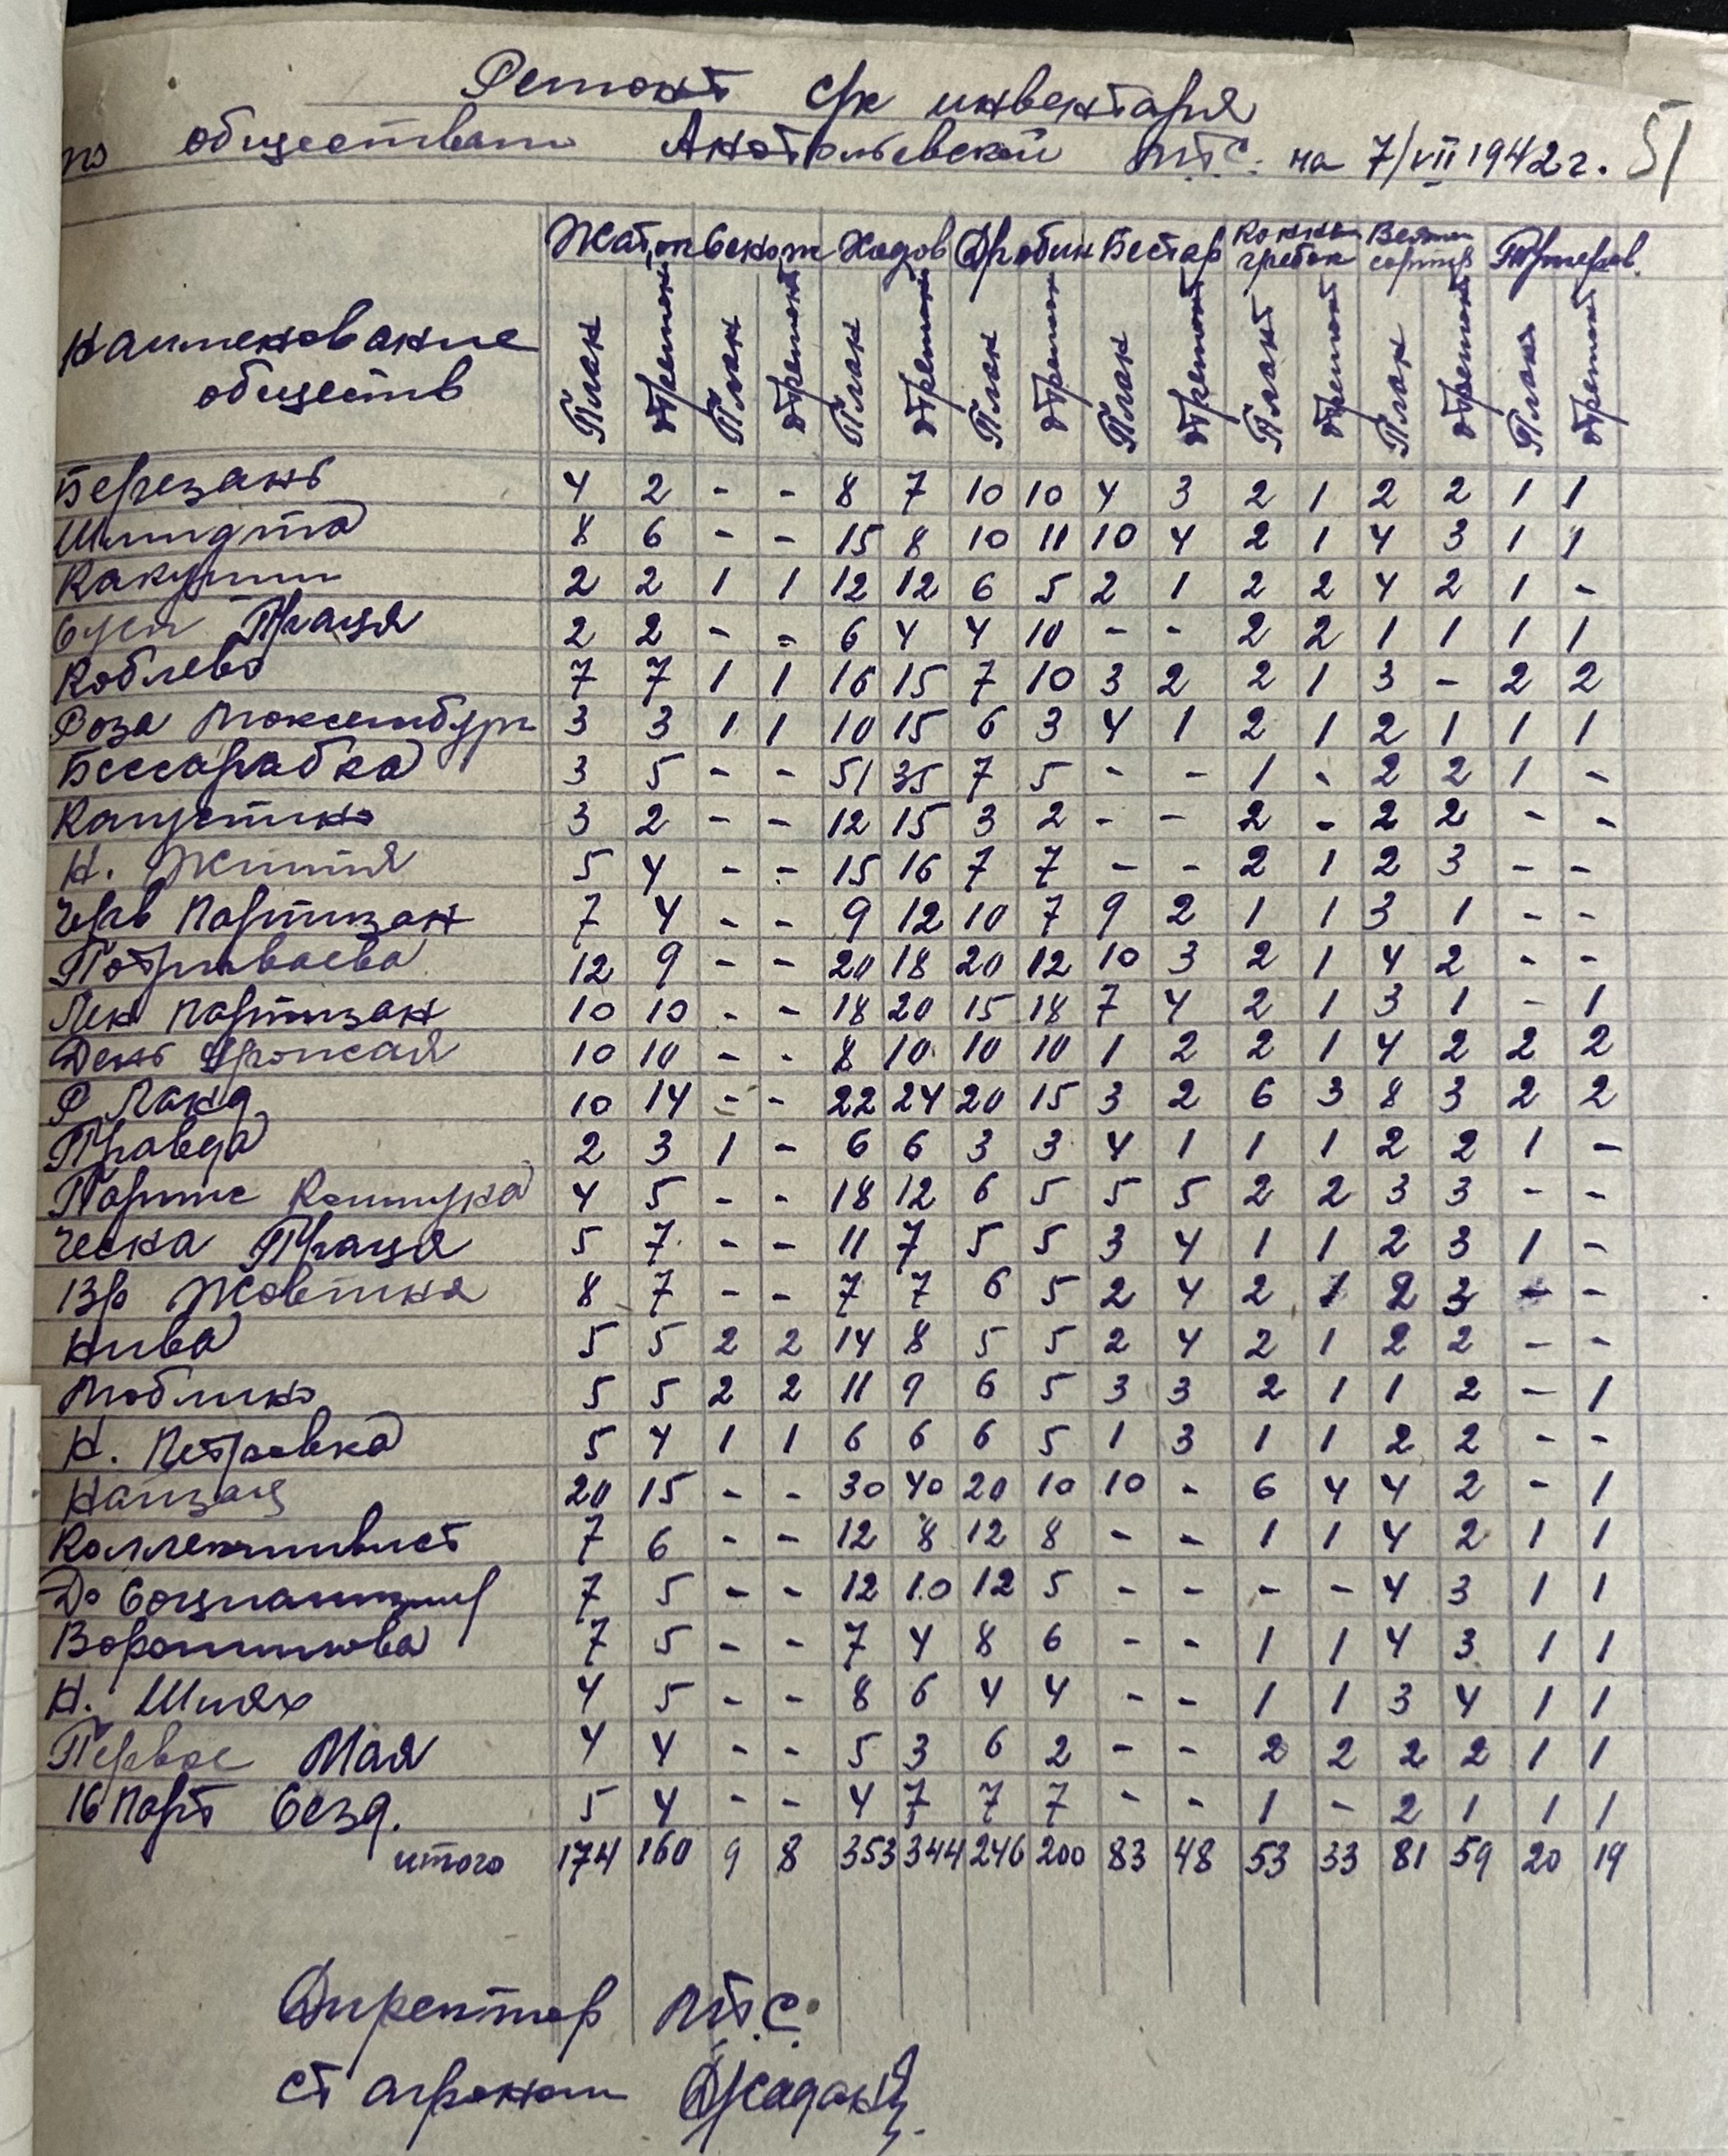 Ремонт с/х инвентаря
по обществам Анатольевской М.Т.С. на 7/VII 1942 г. 51
Наименование обществ
Жаток Сенок Ходов Дробин Бестар Конны гребок Веялки сортир Триеров.
План отремон План отремон План отремон План отремон План отремон План отремон План отремон План отремон
Березань 4 2 - - 8 7 10 10 4 3 2 1 2 2 1 1
Шмидта 8 6 - - 15 8 10 11 10 4 2 1 4 3 1 1
2 2 1 1 12 12 6 5 2 1 2 2 4 2 1 -
Сусп Праця 2 2 - = 6 4 4 10 - - 2 2 1 1 1 1
Коблево 7 7 1 1 16 15 7 10 3 2 2 1 3 - 2 2
Роза Люксембург 3 3 1 1 10 15 6 3 4 1 2 1 2 1 1 1
Бессарабка 3 5 - - 51 35 7 5 - - 1 - 2 2 1 -
Капустино 3 2 - - 12 15 3 2 - - 2 - 2 2 - -
Н. Життя 5 4 - - 15 16 7 7 - - 2 1 2 3 - -
Черв Партизан 7 4 - - 9 12 10 7 9 2 1 1 3 1 - -
12 9 - - 20 18 20 12 10 3 2 1 4 2 - -
Лен партизан 10 10 - - 18 20 15 18 7 4 2 1 3 1 - 1
День Урожая 10 10 - - 8 10 10 10 1 2 2 1 4 2 2 2
Р. Ланд 10 14 - - 22 24 20 15 3 2 6 3 8 3 2 2
Правда 2 3 1 - 6 6 3 3 4 1 1 1 2 2 1 -
Париж Коммуна 4 5 - - 18 12 6 5 5 5 2 2 3 3 - -
Чесна Праця 5 7 - - 11 7 5 5 3 4 1 1 2 3 1 -
13р Жовтня 8 7 - - 7 7 6 5 2 4 2 1 2 3 - -
Нива 5 5 2 2 14 8 5 5 2 4 2 1 2 2 - -
Люблино 5 5 2 2 11 9 6 5 3 3 2 1 1 2 - 1
Н. Петровка 5 4 1 1 6 6 6 5 1 3 1 1 2 2 - -
20 15 - - 30 40 20 10 10 - 6 4 4 2 - 1
Коллективист 7 6 - - 12 8 12 8 - - 1 1 4 2 1 1
До 7 5 - - 12 10 12 5 - - - - 4 3 1 1
Ворошилова 7 5 - - 7 4 8 6 - - 1 1 4 3 1 1
Н. Шлях 4 5 - - 8 6 4 4 - - 1 1 3 4 1 1
Первое Мая 4 4 - - 5 3 6 2 - - 2 2 2 2 1 1
16 Парт Сезд. 5 4 - - 4 7 7 7 - - 1 - 2 1 1 1
итого 174 160 9 8 353 344 246 200 83 48 53 33 81 59 20 19
Директор М.Т.С.
ст агроном